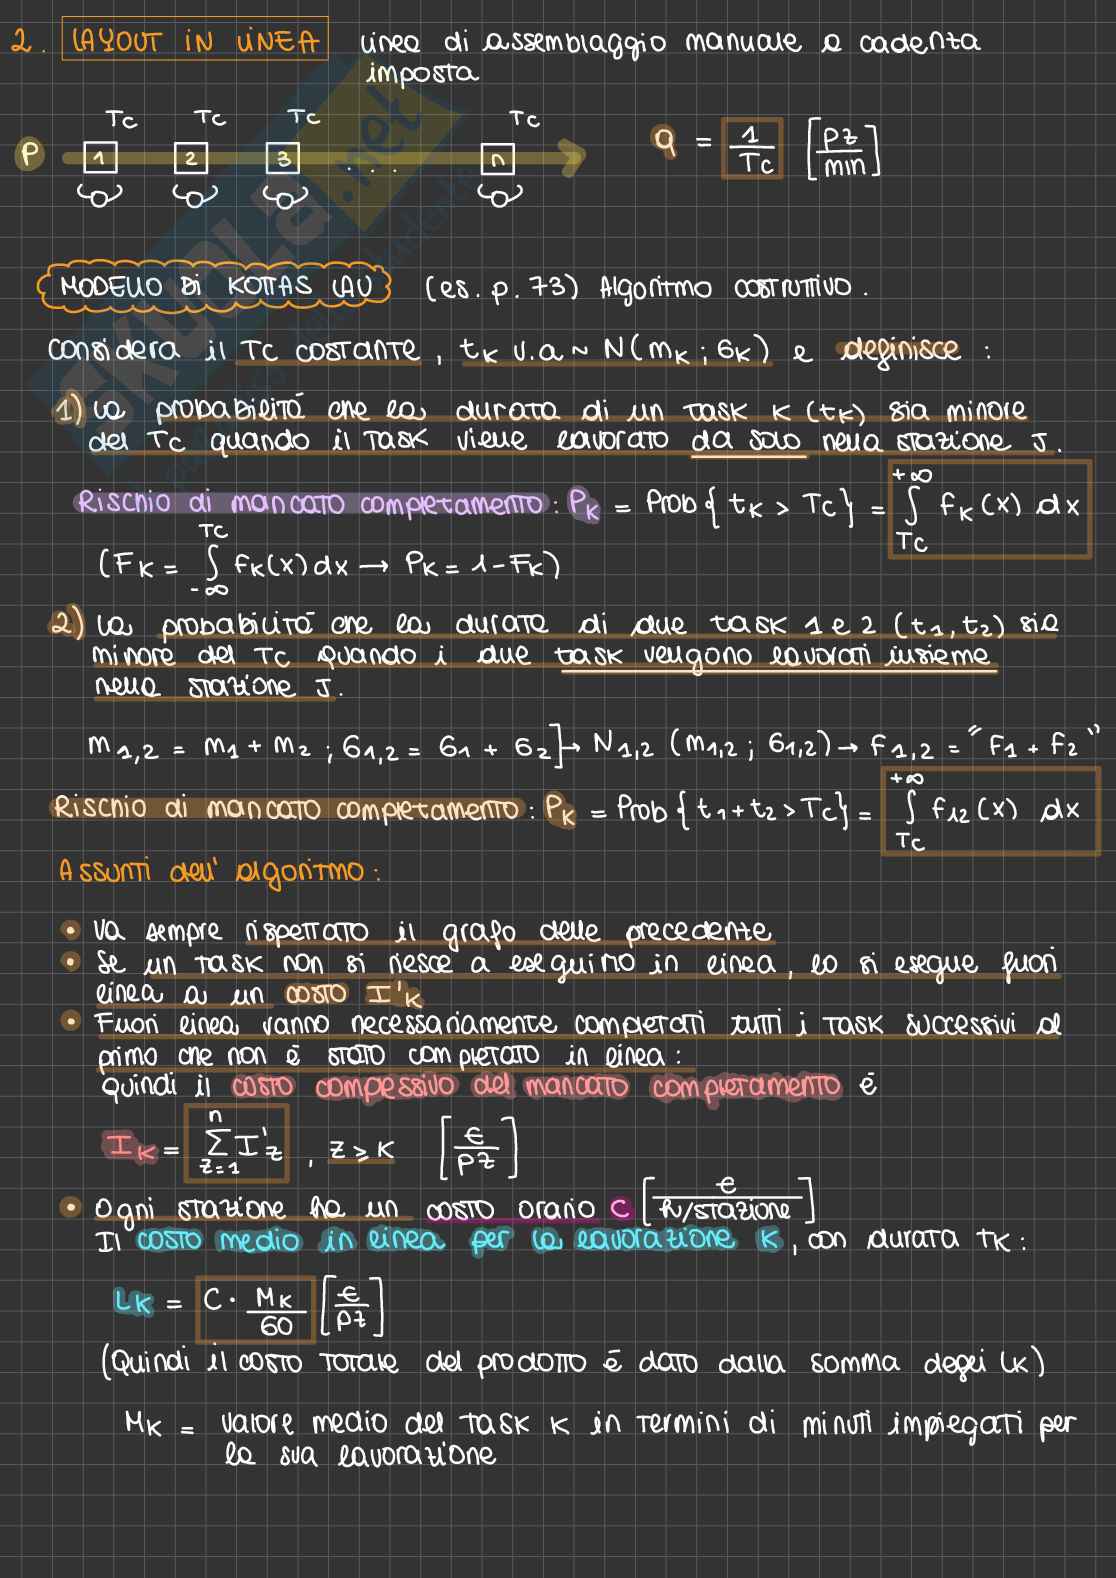 2. LAYOUT IN LINEA linea di assemblaggio manuale a cadenza
imposta
Tc Tc Tc Tc
P 1 2 3 ... n q = 1/Tc [pz/min]
MODELLO DI KOTTAS LAU (es. p. 73) Algoritmo costruttivo.
Considera il Tc costante, tk v.a ~ N(mk; σk) e definisce:
1) la probabilità che la durata di un task K (tk) sia minore
del Tc quando il task viene lavorato da solo nella stazione J.
Rischio di mancato completamento: Pk = Prob{tk > Tc} = ∫_Tc^+∞ fk(x) dx
(Fk = ∫_-∞^Tc fk(x)dx → Pk = 1-Fk)
2) La probabilità che la durata di due task 1 e 2 (t1, t2) sia
minore del Tc quando i due task vengono lavorati insieme
nella stazione J.
m1,2 = m1 + m2 ; σ1,2 = σ1 + σ2] → N1,2 (m1,2 ; σ1,2) → f1,2 = "f1 + f2"
Rischio di mancato completamento: Pk = Prob{t1+t2>Tc} = ∫_Tc^+∞ f12(x) dx
Assunti dell'algoritmo:
• Va sempre rispettato il grafo delle precedenze
• Se un task non si riesce a eseguirlo in linea, lo si esegue fuori
linea a un costo I'k
• Fuori linea vanno necessariamente completati tutti i task successivi al
primo che non è stato completato in linea:
quindi il costo complessivo del mancato completamento è
Ik = Σ_z=1^n I'z , z ≥ k [€/pz]
• Ogni stazione ha un costo orario C [€/h/stazione]
Il costo medio in linea per la lavorazione K, con durata tk:
Lk = C · Mk/60 [€/pz]
(Quindi il costo totale del prodotto è dato dalla somma degli Lk)
Mk = valore medio del task K in termini di minuti impiegati per
la sua lavorazione
SKUOLA.net